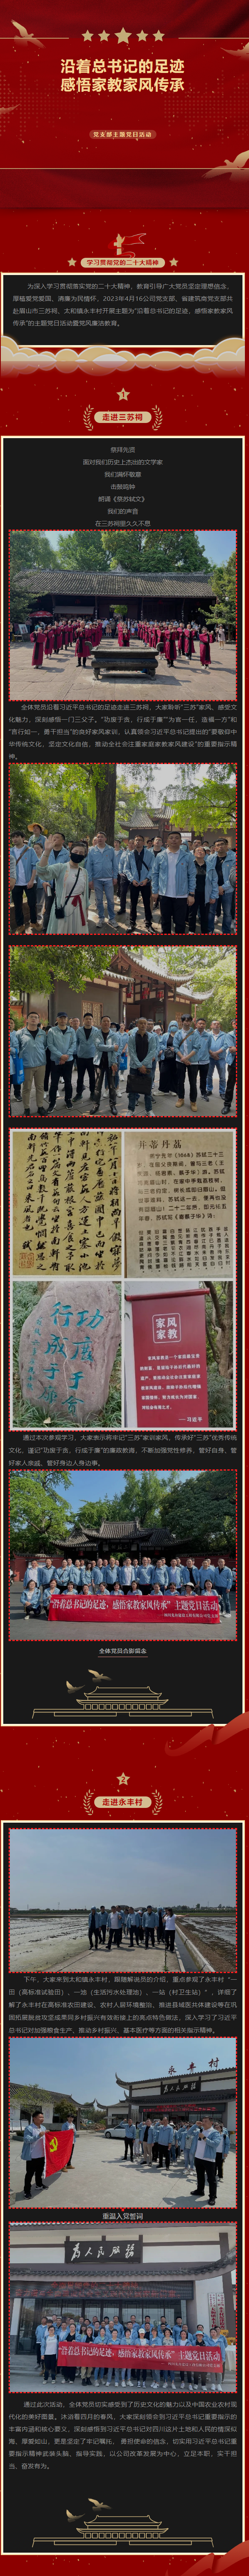 沿着总书记的足迹
感悟家教家风传承
党支部主题党日活动
学习贯彻党的二十大精神
为深入学习贯彻落实党的二十大精神，教育引导广大党员坚定理想信念、
厚植爱党爱国、清廉为民情怀，2023年4月16公司党支部、省建筑商党支部共
赴眉山市三苏祠、太和镇永丰村开展主题为“沿着总书记的足迹，感悟家教家风
传承”的主题党日活动暨党风廉洁教育。
1
走进三苏祠
祭拜先贤
面对我们历史上杰出的文学家
我们满怀敬意
击鼓鸣钟
朗诵《祭苏轼文》
我们的声音
在三苏祠里久久不息
全体党员沿着习近平总书记的足迹走进三苏祠，大家聆听“三苏”家风，感受文
化魅力，深刻感悟一门三父子。“功废于贪，行成于廉”“为官一任，造福一方”和
“言行如一，勇于担当”的良好家风家训，认真领会习近平总书记提出的“要敬仰中
华传统文化、坚定文化自信，推动全社会注重家庭家教家风建设”的重要指示精
神。
并蒂丹荔
功废于贪
行成于廉
家风
家教
——习近平
通过本次参观学习，大家表示将牢记“三苏”家训家风，传承好“三苏”优秀传统
文化，谨记“功废于贪，行成于廉”的廉政教诲，不断加强党性修养，管好自身、管
好家人亲戚、管好身边人身边事。
“沿着总书记的足迹，感悟家教家风传承”主题党日活动
全体党员合影留念
2
走进永丰村
下午，大家来到太和镇永丰村，跟随解说员的介绍，重点参观了永丰村“一
田（高标准试验田）、一地（生活污水处理地）、一站（村卫生站）”，详细了
解了永丰村在高标准农田建设、农村人居环境整治、推进县域医共体建设等在巩
固拓展脱贫攻坚成果同乡村振兴有效衔接上的亮点特色做法，深入学习了习近平
总书记对加强粮食生产、推动乡村振兴、基本医疗等方面的相关指示精神。
永丰村
为人民服务
重温入党誓词
为人民服务
“沿着总书记的足迹，感悟家教家风传承”主题党日活动
通过此次活动，全体党员切实感受到了历史文化的魅力以及中国农业农村现
代化的美好图景。沐浴着四月的春风，大家深刻领会到习近平总书记重要指示的
丰富内涵和核心要义，深刻感悟到习近平总书记对四川这片土地和人民的情深似
海、厚爱如山，更是坚定了牢记嘱托，勇担使命的信念，切实用习近平总书记重
要指示精神武装头脑、指导实践，以公司改革发展为中心，立足本职，实干担
当，奋发有为。